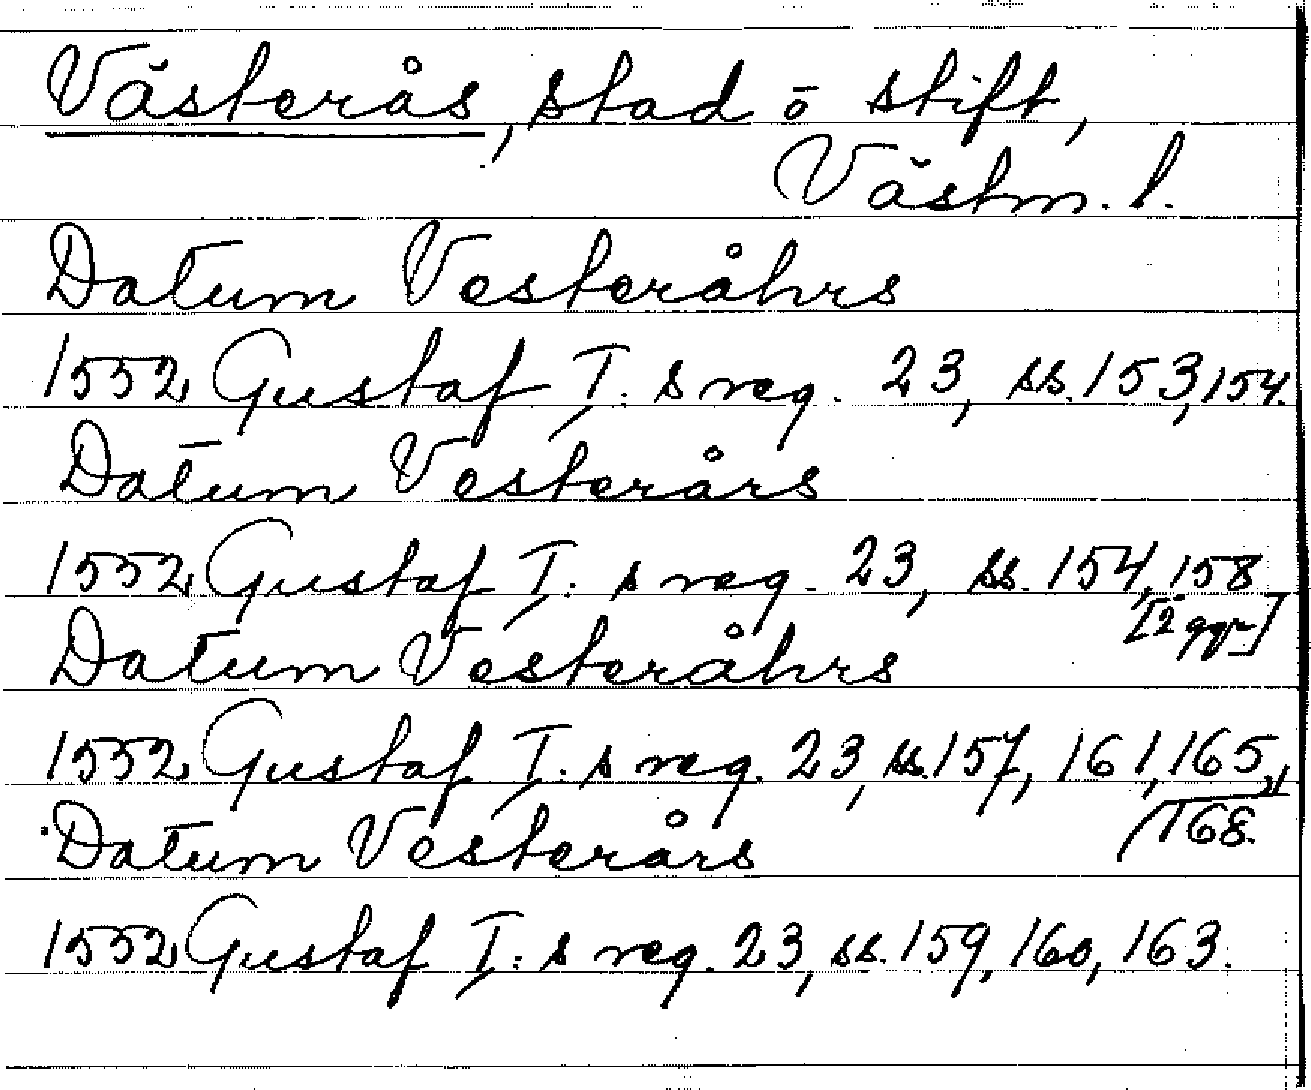 Västerås, stad o stift,
Västm. l.
Datum Vesteråhrs
1552 Gustaf I: s reg. 23, ss. 153, 154.
Datum Vesterårs
1552 Gustaf I: s reg. 23, ss. 154, 158
[2 ggr]
Datum Vesteråhrs
1552 Gustaf I: s reg. 23, ss. 157, 161, 165,
168.
Datum Vesterårs
1552 Gustaf I: s reg. 23, ss. 159, 160, 163.